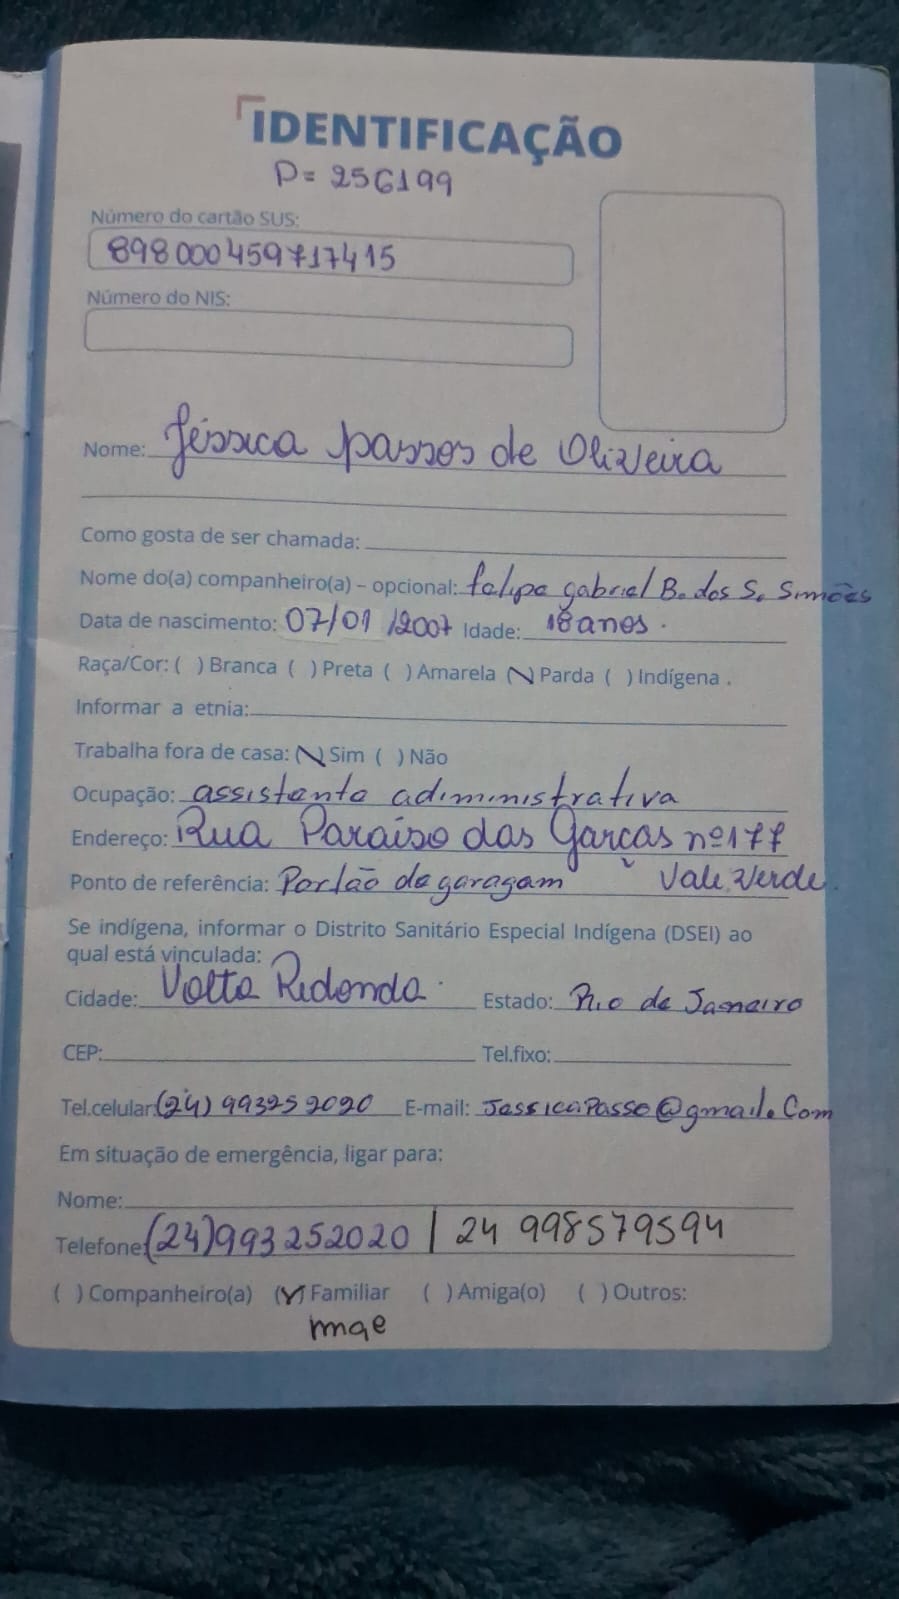 IDENTIFICAÇÃO
P= 256199
Número do cartão SUS:
898000459717415
Número do NIS:
Nome: Jéssica passos de Oliveira
Como gosta de ser chamada:
Nome do(a) companheiro(a) – opcional: felipe gabriel B. dos S. Simões
Data de nascimento: 07/01/2007 Idade: 18 anos.
Raça/Cor: ( ) Branca ( ) Preta ( ) Amarela (\) Parda ( ) Indígena .
Informar a etnia:
Trabalha fora de casa: (\) Sim ( ) Não
Ocupação: assistente adiministrativa
Endereço: Rua Paraiso das Garças nº 177
Ponto de referência: Portão de garagem Vale Verde
Se indígena, informar o Distrito Sanitário Especial Indígena (DSEI) ao
qual está vinculada:
Cidade: Volta Redonda. Estado: Rio de Janeiro
CEP: Tel.fixo:
Tel.celular: (24) 993252020 E-mail: JessicaPasso@gmail.Com
Em situação de emergência, ligar para:
Nome:
Telefone: (24) 993252020 | 24 998579594
( ) Companheiro(a) (✓) Familiar ( ) Amiga(o) ( ) Outros:
mae